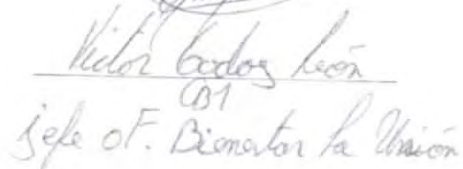 Victor Godoy León
CB1
jefe of. Bienestar La Unión